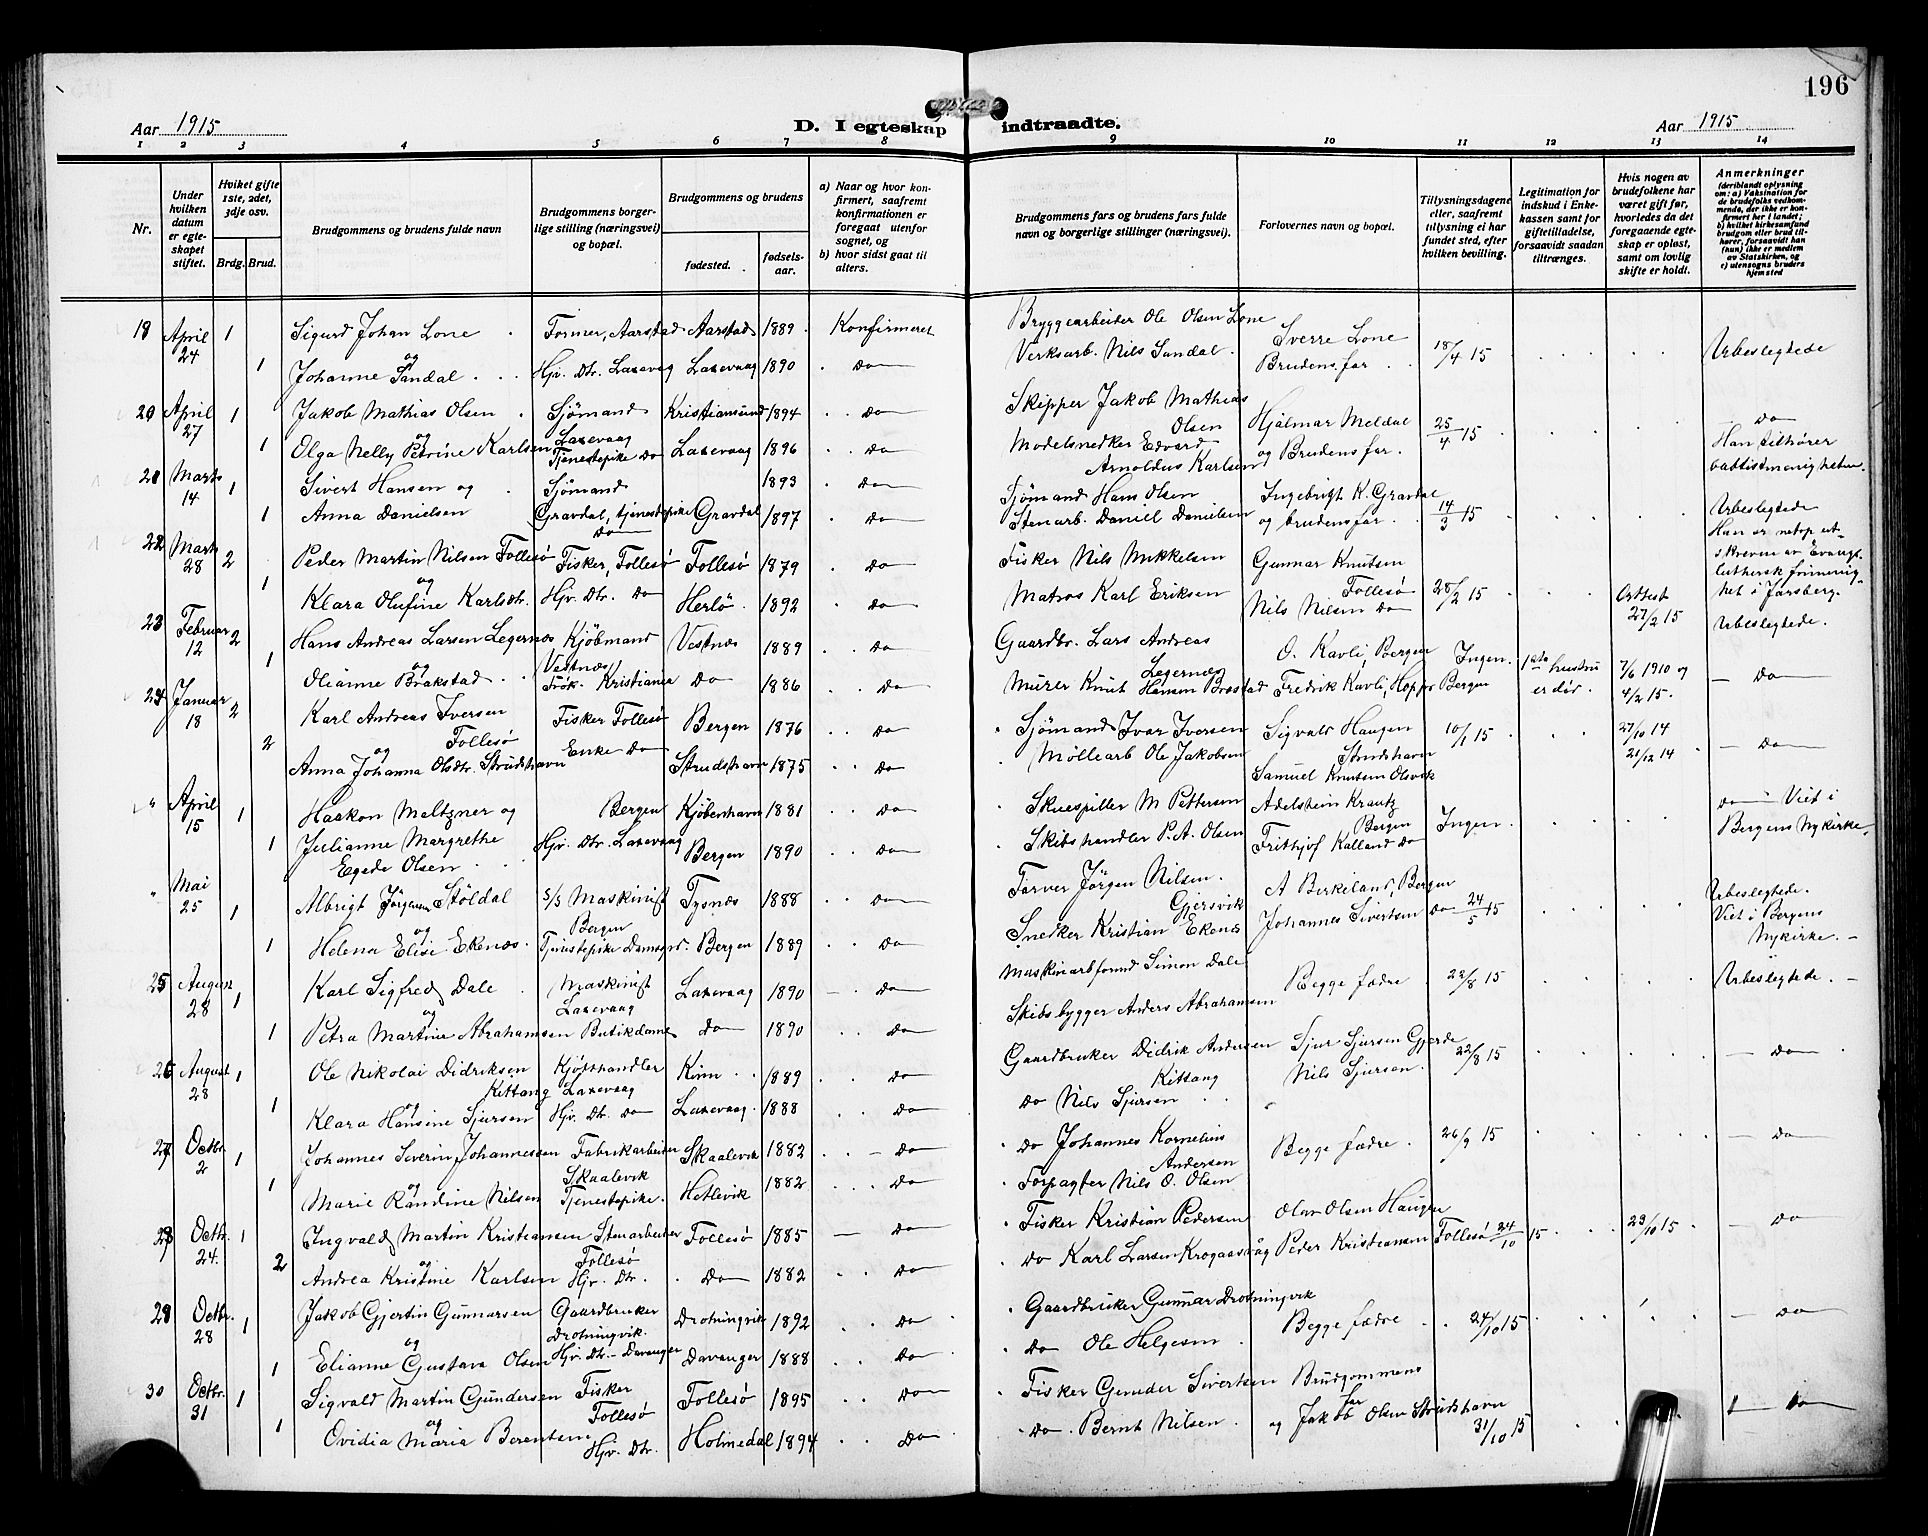 196
Aar 1915
D. I egteskap indtraadte.
Aar 1915
1 2 3 4 5 6 7 8 9 10 11 12 13 14
Nr.
Under hvilken datum er egteskapet stiftet.
Hviket gifte 1ste, 2det, 3dje osv.
Brdg. Brud.
Brudgommens og brudens fulde navn
Brudgommens borgerlige stilling (næringsvei) og bopæl.
Brudgommens og brudens
fødested.
fødselsaar.
a) Naar og hvor konfirmert, saafremt konfirmationen er foregaat utenfor sognet, og
b) hvor sidst gaat til alters.
Brudgommens fars og brudens fars fulde navn og borgerlige stillinger (næringsvei).
Forlovernes navn og bopæl.
Tillysningsdagene eller, saafremt tillysning ei har fundet sted, efter hvilken bevilling.
Legitimation for indskud i Enkekassen samt for giftetilladelse, forsaavidt saadan tiltrænges.
Hvis nogen av brudefolkene har været gift før, hvorledes da det foregaaende egteskap er opløst, samt om lovlig skifte er holdt.
Anmerkninger
(deriblandt oplysning om: a) Vaksination for de brudefolks vedkommende, der ikke er konfirmert her i landet; b) hvilket kirkesamfund brudgom eller brud tilhører, forsaavidt han (hun) ikke er medlem av Statskirken, og c) utensogns bruders hjemsted
18 April 24 1 Sigurd Johan Lone Former, Aarstad Aarstad 1889 Konfirmeret Bryggearbeider Ole Olsen Lone Sverre Lone 18/4 15 Ubeslegtede
og
1 Johanne Sandal Hjv. Dtr. Laxevaag Laxevaag 1890 Do Verksarb. Nils Sandal Brudens far
20 April 27 1 Jakob Mathias Olsen Sjömand Kristiansund 1894 Do Skipper Jakob Mathias Olsen Hjalmar Meldal 25/4 15 Do
og Laxevaag Han tilhører
1 Olga Nelly Petrine Karlsen Tjenestepike Do Laxevaag 1896 Do Modelsnedker Edvard Arnoldus Karlsen og Brudens far.
21 Marts 14 1 Sivert Hansen og Sjömand 1893 Do Sjömand Hans Olsen Ingebrigt K. Gravdal 14/3 15 Ubeslegtede
1 Anna Danielsen Gravdal, tjenestepike Do Gravdal 1897 Do Stenarb. Daniel Danielsen og brudens far
22 Marts 28 2 Peder Martin Nilsen Follesö Fisker, Follesö Follesö 1879 Do Fisker Nils Mikkelsen Gunnar Knutsen Follesö 28/2 15 Attest 27/2 15
og
1 Klara Olufine Karlsdtr. Hjv. Dtr. Do Herlö 1892 Do Matros Karl Eriksen Nils Nilsen Do
Ubeslegtede.
23 Februar 12 2 Hans Andreas Larsen Legernæs Kjöbmand Vestnæs Vestnæs 1889 Do Gaardbr. Lars Andreas Legernæs O. Kavli, Bergen Ingen 1ste hustru er död. 7/6 1910 og 4/2 15. Do
og
1 Olianne Brakstad Frök. Kristiania Do 1886 Do Murer Knut Hansen Fredrik Kavli, Bergen
24 Januar 18 2 Karl Andreas Iversen Follesö Fisker Follesö Bergen 1876 Do Sjömand Ivar Iversen Sigvald Haugen Strudshavn 10/1 15 27/10 14 21/12 14 Do
og
2 Anna Johanna Olsdtr. Strudshavn Enke Do Strudshavn 1875 Do Möllearb Ole Jakobsen Samuel Knutsen Olsvik
" April 15 1 Haakon Meltzner og Bergen Kjöbenhavn 1881 Do Skuespiller M Pettersen Adelsheim Krautz Bergen Ingen Do Viet i
1 Julianne Margrethe Egede Olsen Hjv. Dtr. Laxevaag Bergen 1890 Do Skibshandler P. A. Olsen Frithjof Kalland Do Bergens Nykirke.
" Mai 25 1 Albrigt Jörgensen Stöldal S/S Maskinist Bergen Tysnæs 1888 Do Farver Jörgen Nilsen Gjersvik A Birkeland, Bergen 24/5 15 Ubeslegtede.
og Viet i Bergens
1 Helena Elise Ekenæs. Tjenestepike Bergen 1889 Do Snedker Kristian Ekenæs Johannes Sivertsen Do Nykirke.
25 August 28 1 Karl Sigfred Dale Maskinist Laxevaag Laxevaag 1890 Do Maskinarbformd Simon Dale Begge fædre 22/8 15 Ubeslegtede.
og
1 Petra Martine Abrahamsen Butikdame Do 1890 Do Skibsbygger Anders Abrahamsen
26 August 28 1 Ole Nikolai Didriksen Kittang Kjötthandler Laxevaag Kinn 1889 Do Gaardbruker Didrik Andersen Kittang Sjur Sjursen Gjerde 22/8 15 Do
og
1 Klara Hansine Sjursen Hjv. Dtr. Do Laxevaag 1888 Do Do Nils Sjursen Nils Sjursen
27 Octbr. 2 1 Johannes Severin Johannessen Fabrikarbeider Skaalevik Skaalevik 1882 Do Do Johannes Kornelius Andersen Begge fædre 26/9 15 Do
og
1 Marie Randine Nilsen Tjenestepike. Hetlevik 1882 Do Forpagter Nils O. Olsen
28 Octbr. 24. 1 Ingvald Martin Kristiansen Stenarbeider Follesö Follesö 1885 Do Fisker Kristian Pedersen Olav Olsen Haugen 24/10 15 23/10 15 Do
og
2 Andrea Kristine Karlsen Hjv. Dtr. Do 1882 Do Do Karl Larsen Krogaasvåg Peder Kristiansen Follesö
29 Octbr. 28 1 Jakob Gjertin Gunnarsen Gaardbruker Drotningvik. Drotningvik 1892 Do Gaardbruker Gunnar Drotningvik Begge fædre 24/10 15 Do
og
1 Elianne Gustava Olsen Hjv. Dtr. Davanger Davanger 1888 Do Do Ole Helgesen
30 Octbr. 31 1 Sigvald Martin Gundersen Fisker Follesö Follesö 1895 Do Fisker Gunder Sivertsen Brudgommens far 31/10 15 Do
og
1 Ovidia Maria Berentsen Hjv. Dtr. Holmedal 1894 Do Do. Bernt Nilsen og Jakob Olsen Strudshavn